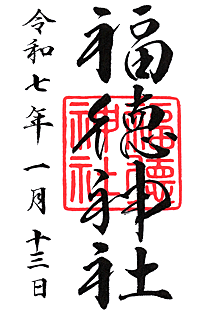 福徳神社
令和七年一月十三日
福徳
神社